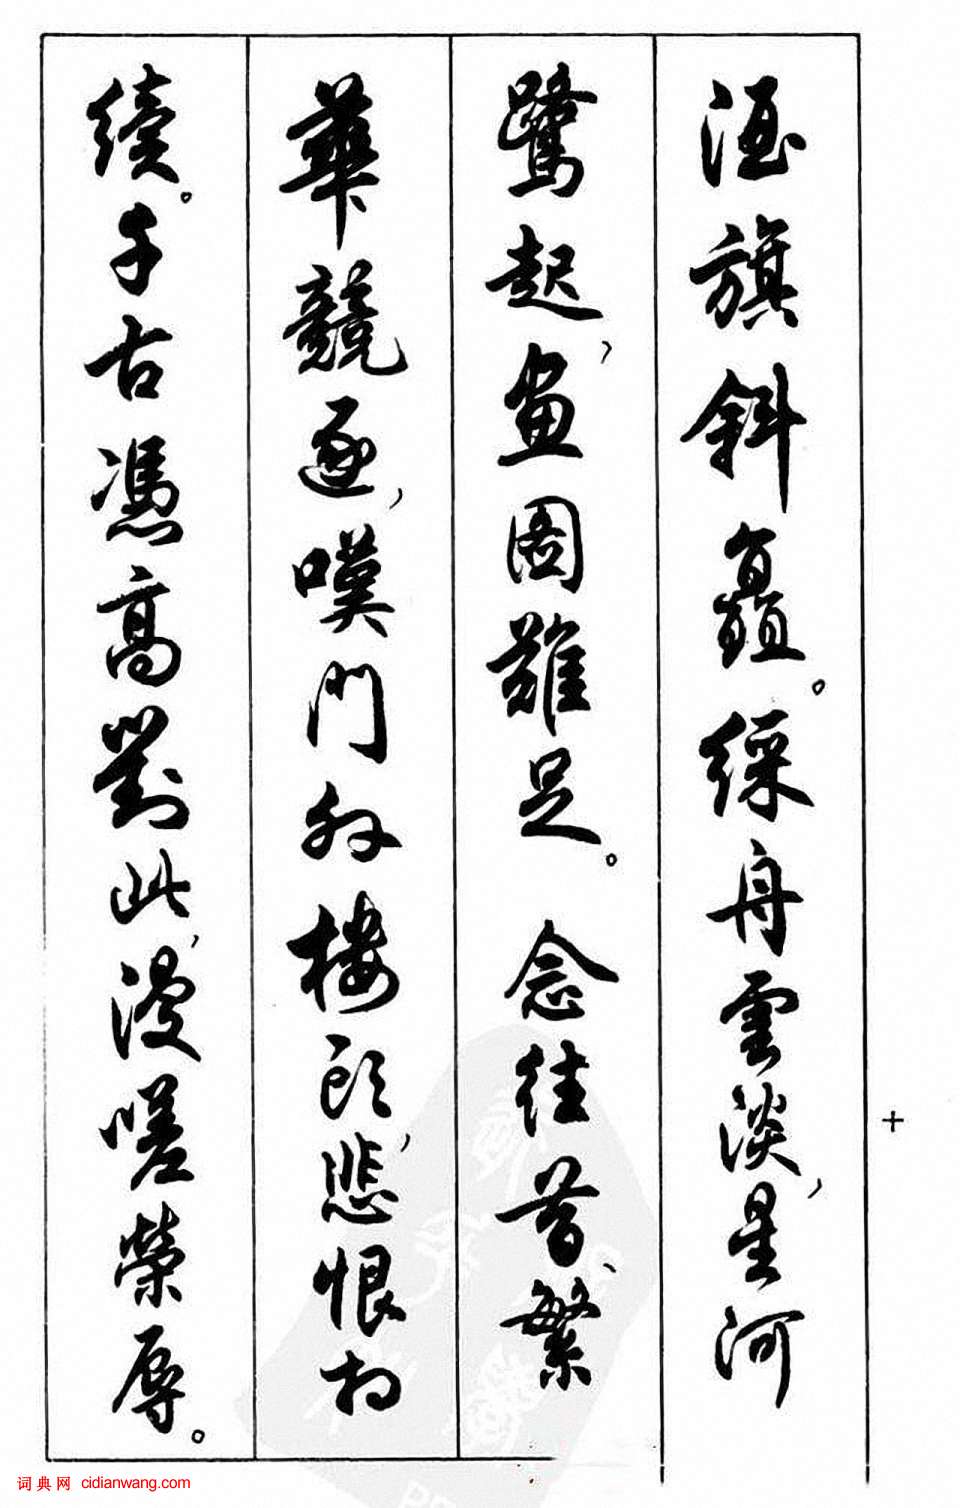 酒旗斜矗。綵舟雲淡，星河
鷺起，畫圖難足。念往昔、繁
華競逐，嘆門外樓頭，悲恨相
續。千古憑高對此，漫嗟榮辱。
词典网 cidianwang.com